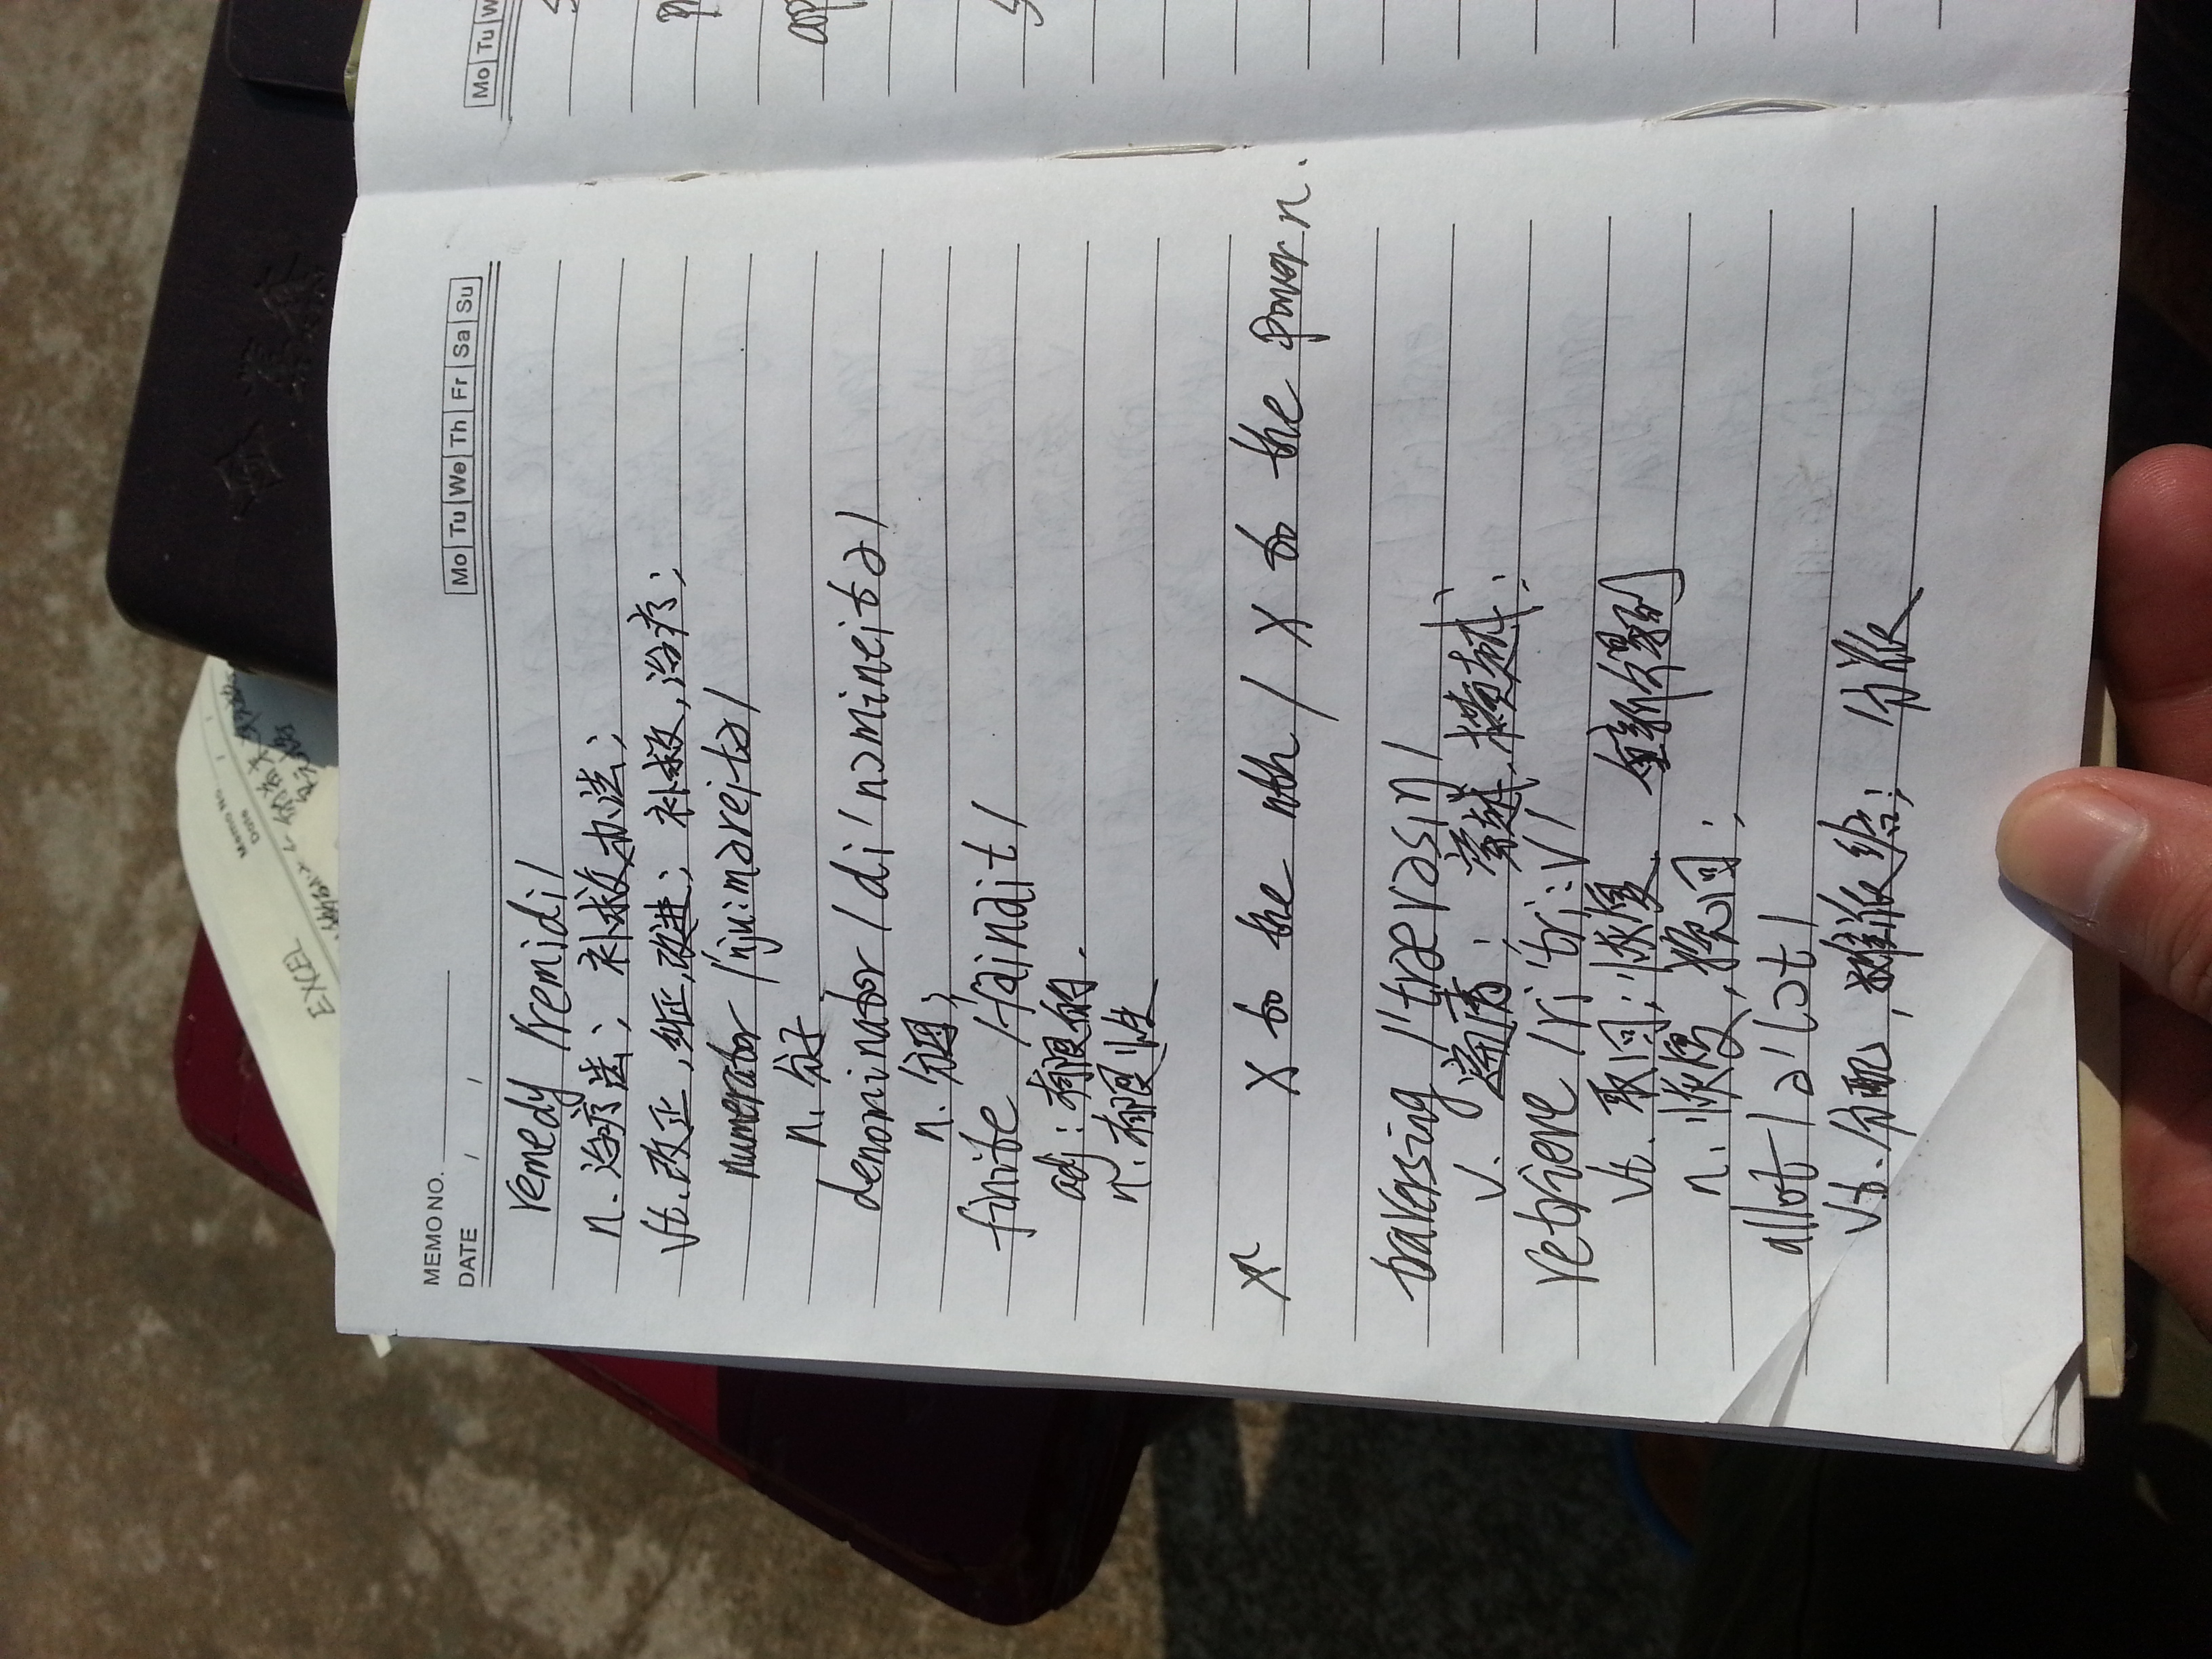 EXCEL
Memo No.
Date / /
MEMO NO.
DATE / /
Mo Tu We Th Fr Sa Su
remedy /'remidi/
n. 治疗法； 补救办法；
vt. 改正，纠正，改进； 补救，治疗；
numerator /'nju:məreitə/
n. 分子.
denominator /di'nɔmineitə/
n. 分母；
finite /'fainait/
adj: 有限的.
n. 有限性
xⁿ X to the nth / X to the power n.
traversing /'trævəsiŋ/
v. 遍历； 穿越，横越；
retrieve /ri'tri:v/
vt. 取回；恢复. 重新得到
n. 恢复，挽回；
allot /ə'lɔt/
vt. 分配，摊派给； 分派
Mo Tu W